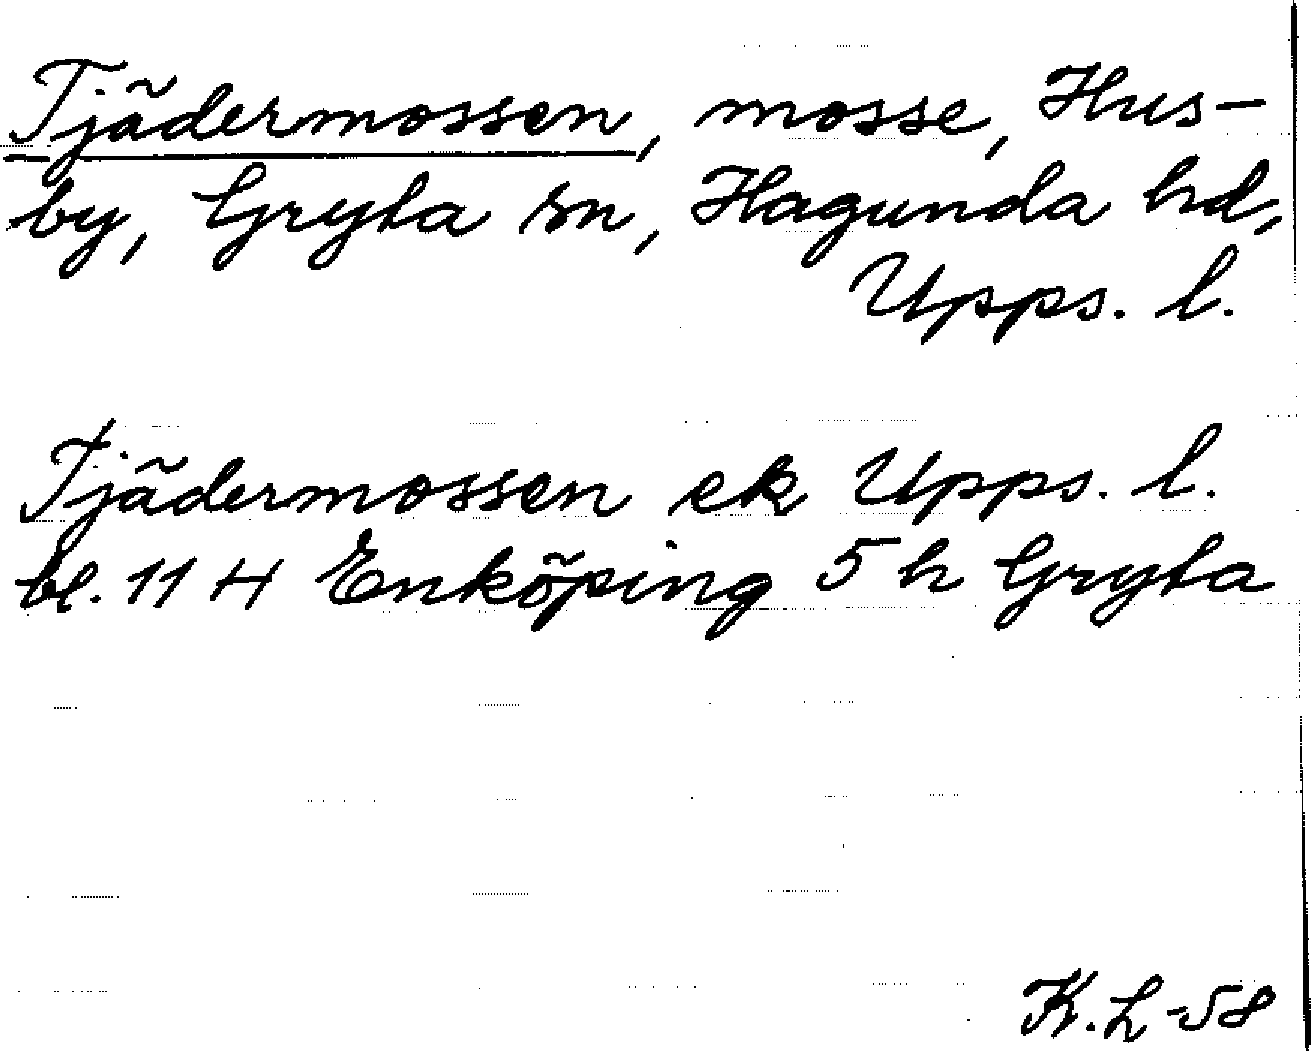 Tjädermossen, mosse, Hus-
by, Gryta sn, Hagunda hd,
Upps. l.
Tjädermossen ek Upps. l.
bl. 11 H Enköping 5 h Gryta
K.L-58